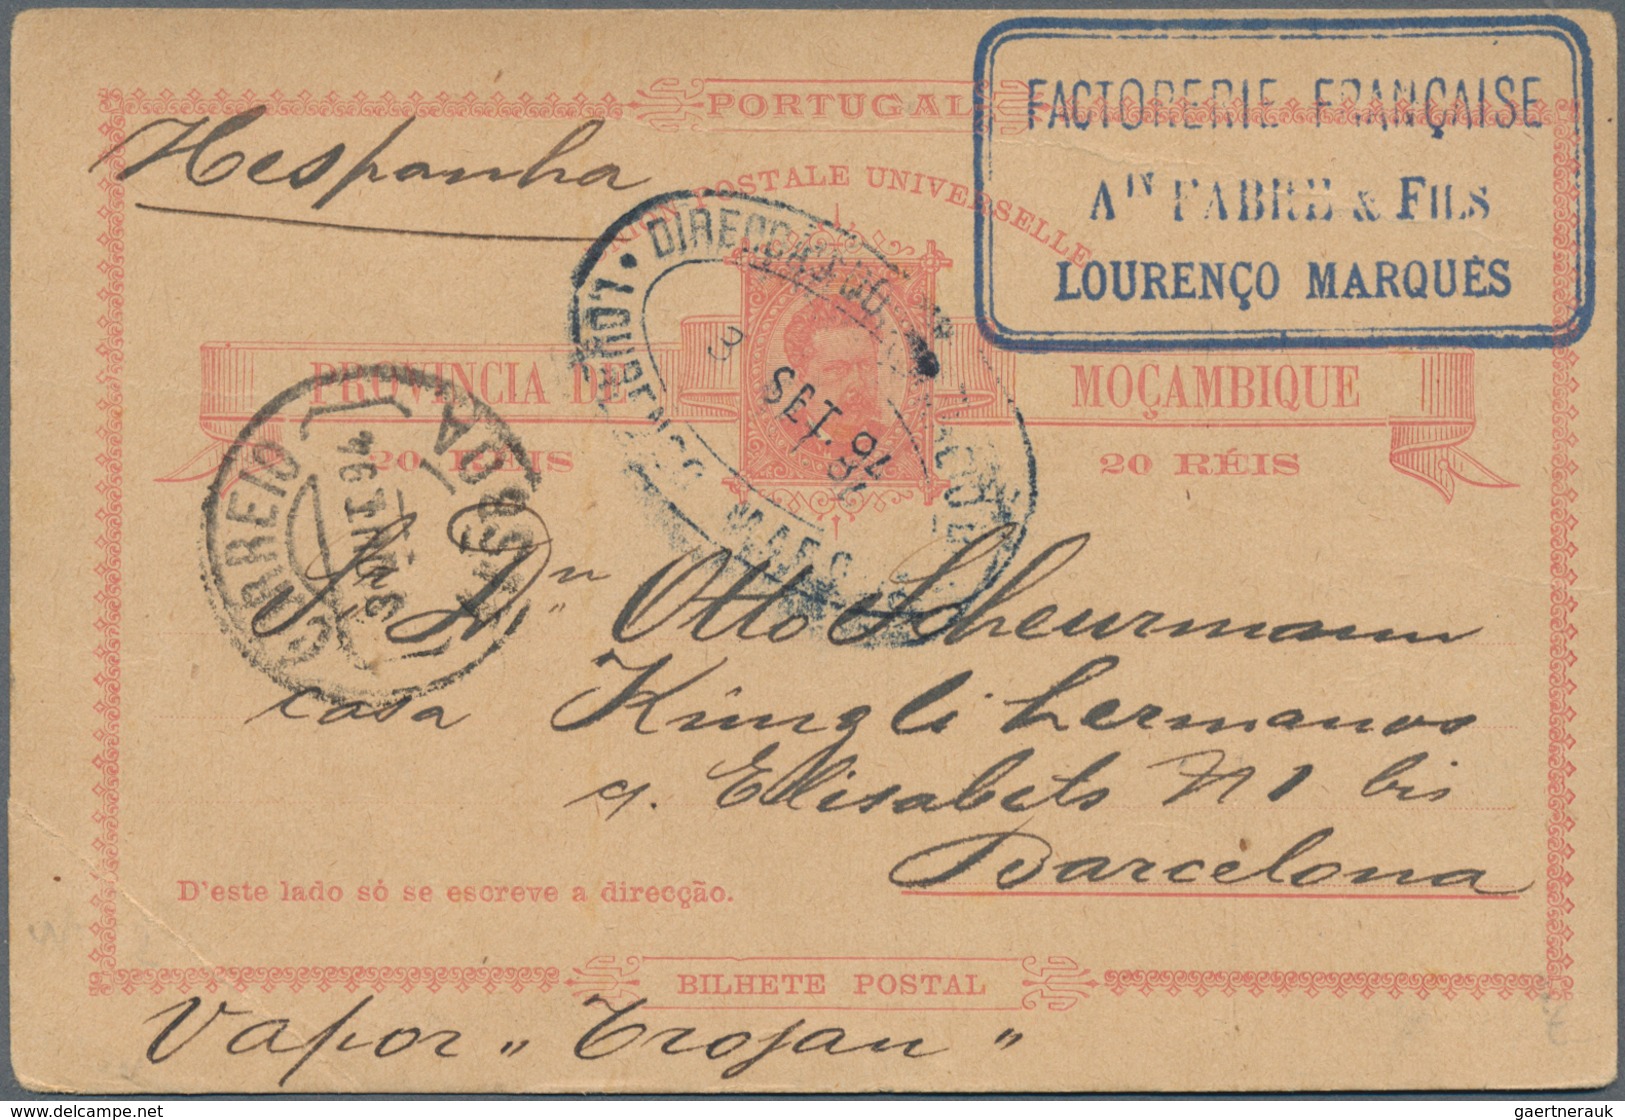 PORTUGAL
UNION POSTALE UNIVERSELLE
FACTORERIE FRANÇAISE
AIN FABRE & FILS
LOURENÇO MARQUÈS
Hespanha
PROVINCIA DE MOÇAMBIQUE
20 RÉIS 20 RÉIS
LOURENÇO MARQUES
3
SET. 94
CORREIO
LISBOA
Otto Scheurmann
casa Küngli hermanos
Elisabets N 1 bis
Barcelona
D'este lado só se escreve a direcção.
BILHETE POSTAL
Vapor „Trojan"
www.delcampe.net
gaertnerauk